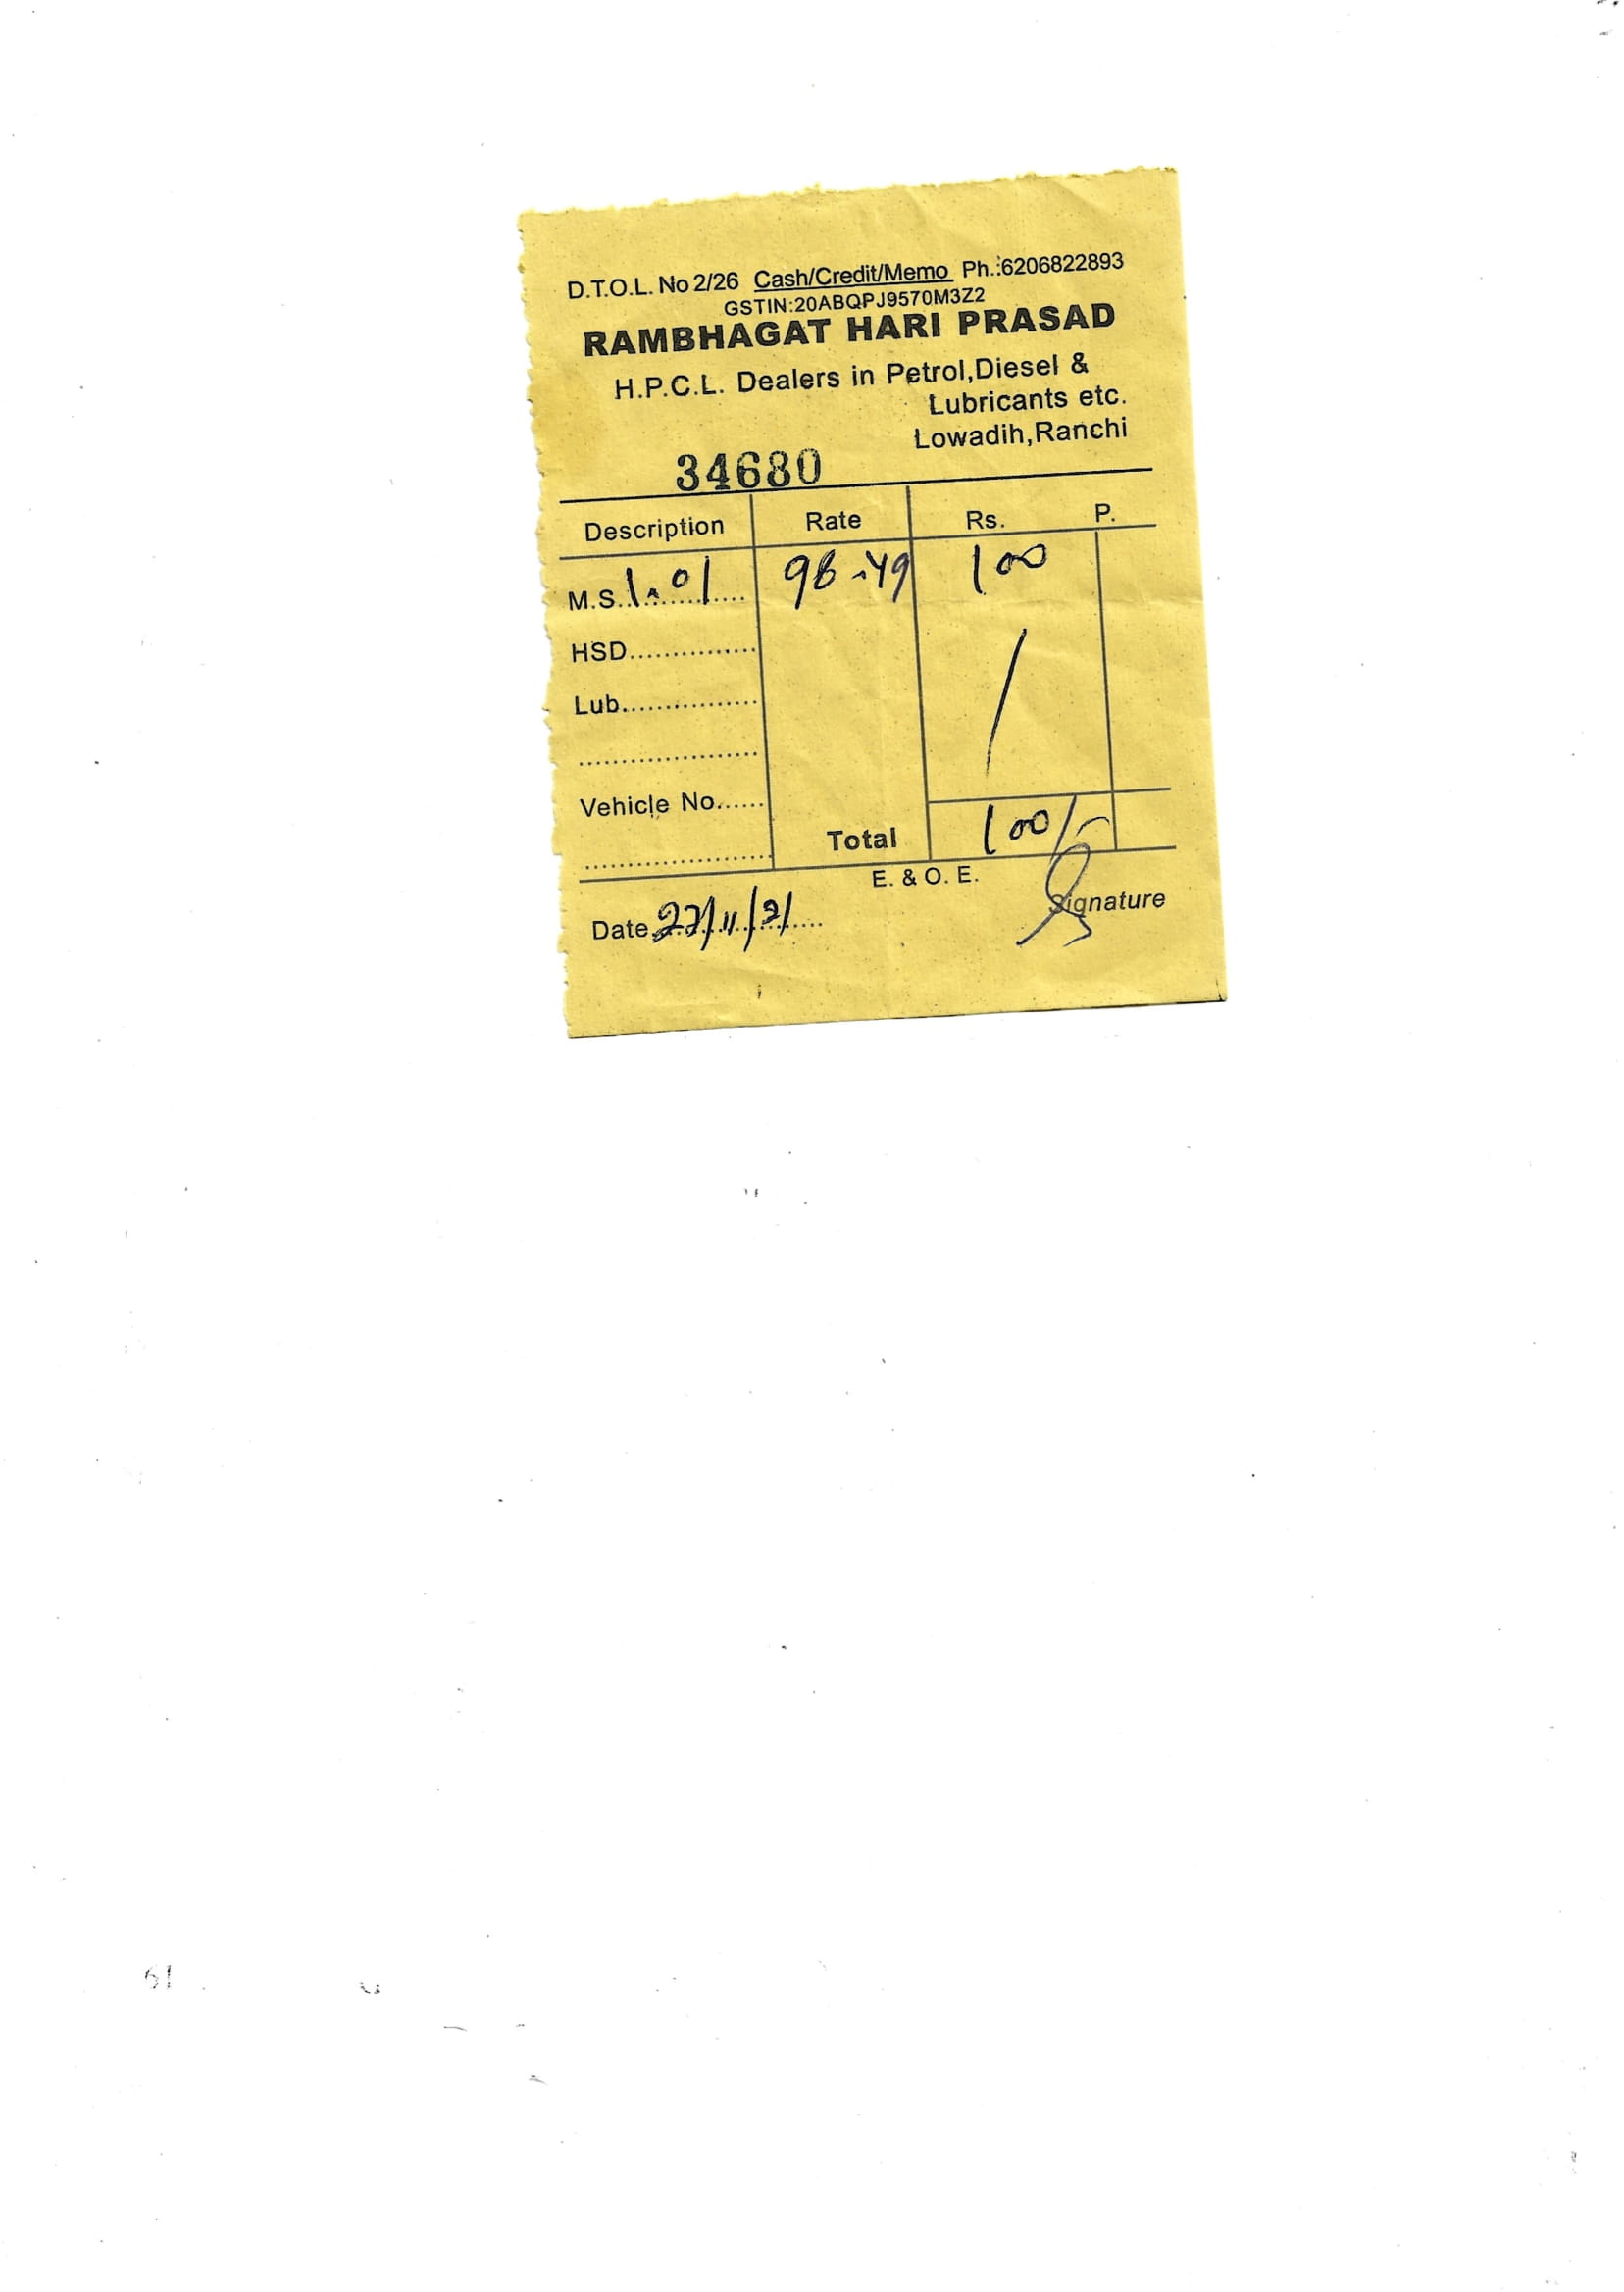 D.T.O.L. No 2/26 Cash/Credit/Memo Ph.:6206822893
GSTIN:20ABQPJ9570M3Z2
RAMBHAGAT HARI PRASAD
H.P.C.L. Dealers in Petrol,Diesel &
Lubricants etc.
Lowadih,Ranchi
34680
Description Rate Rs. P.
M.S. 1.01 98.49 100
HSD...............
Lub................
Vehicle No......
Total 100/-
E. & O. E.
Date 27/11/21 Signature